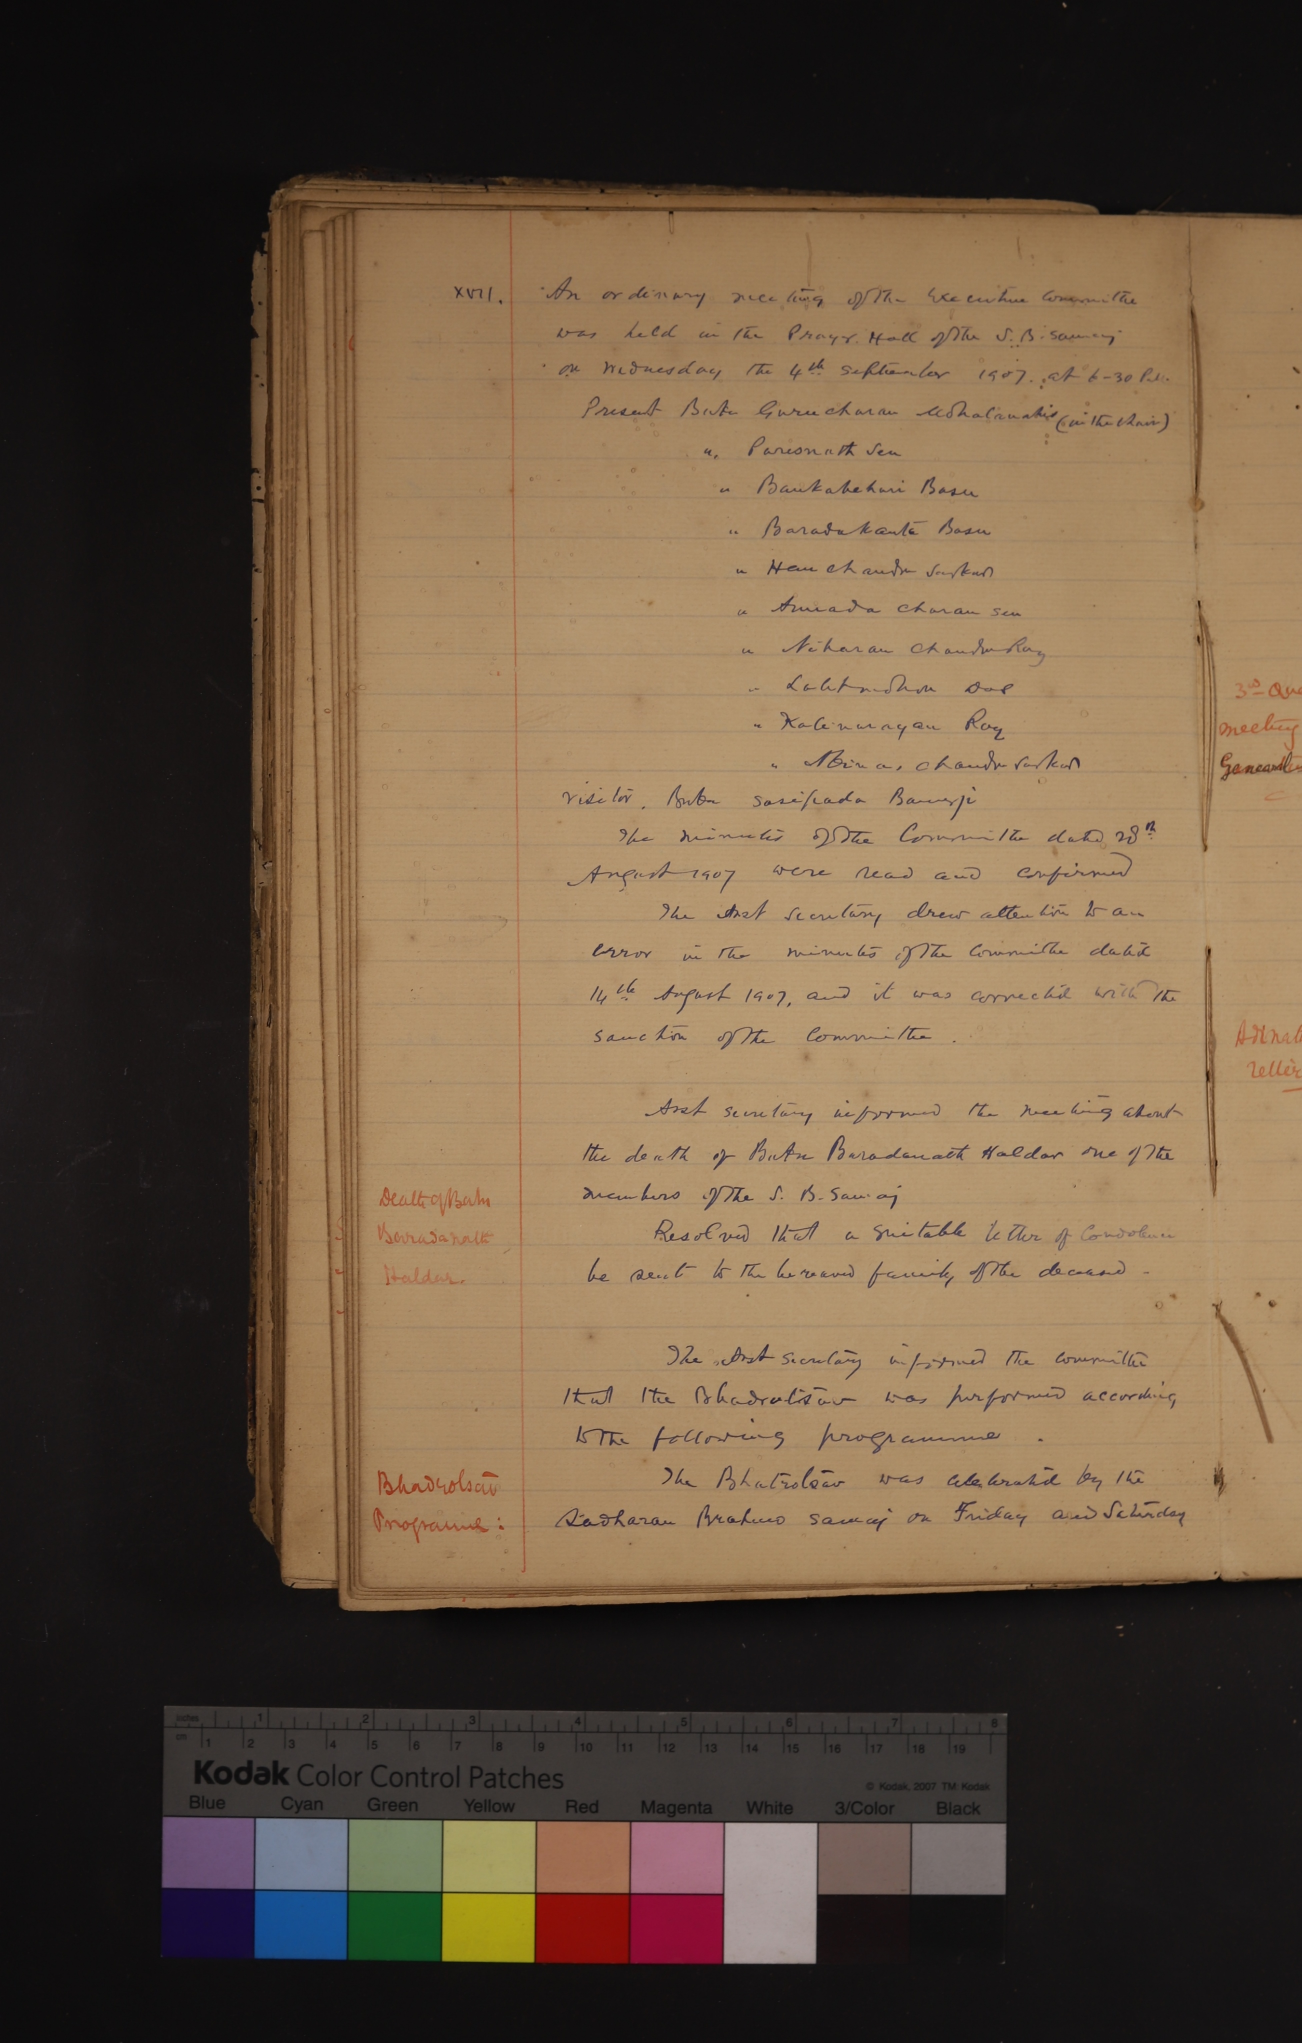 XVII. An ordinary meeting of the Executive Committee
was held in the Prayer Hall of the S. B. Samaj
on Wednesday the 4th September 1907. at 6-30 P.M.
Present Babu Gurucharan Mohalanabis (in the chair)
" Paresnath Sen
" Bankabehari Basu
" Baradakanta Basu
" Hem Chandra Sarkar
" Annada Charan Sen
" Nibaran Chandra Ray
" Lalitmohon Das
" Kalinarayan Ray
" Abinas Chandra Sarkar
Visitor. Babu Sasipada Banerji
The minutes of the Committee dated 28th
August 1907 were read and confirmed
The Asst Secretary drew attention to an
error in the minutes of the Committee dated
14th August 1907, and it was corrected with the
sanction of the Committee.
Asst Secretary informed the meeting about
the death of Babu Baradanath Haldar one of the
members of the S. B. Samaj
Death of Babu
Baradanath
Haldar.
Resolved that a suitable letter of Condolence
be sent to the bereaved family of the deceased -
The Asst Secretary informed the committee
that the Bhadrotsav was performed according
to the following programme.
Bhadrotsav
Programme:
The Bhadrotsav was celebrated by the
Sadharan Brahmo Samaj on Friday and Saturday
3rd Qua
meeting
letter
inches 1 2 3 4 5 6 7 8
cm 1 2 3 4 5 6 7 8 9 10 11 12 13 14 15 16 17 18 19
Kodak Color Control Patches
© Kodak, 2007 TM: Kodak
Blue Cyan Green Yellow Red Magenta White 3/Color Black